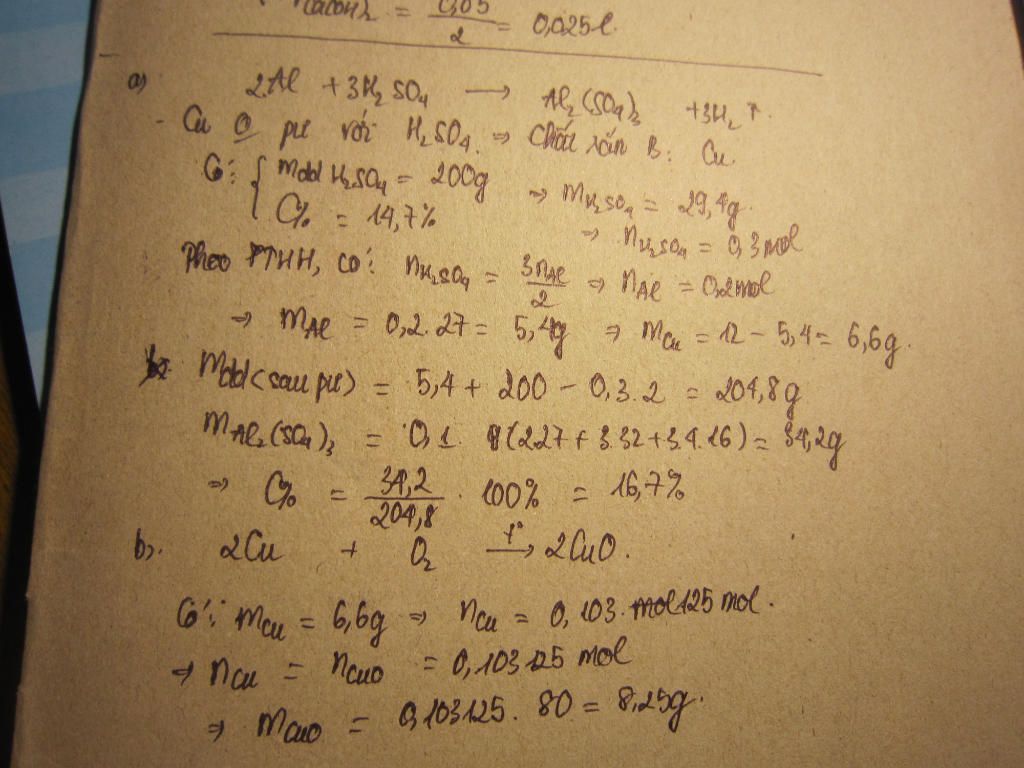 = 0,05/2 = 0,025l.
a) 2Al + 3H₂SO₄ ⟶ Al₂(SO₄)₃ + 3H₂ ↑.
- Cu O pư với H₂SO₄. ⇒ Chất rắn B: Cu.
Có: { mdd H₂SO₄ = 200g ⇒ mH₂SO₄ = 29,4g.
C% = 14,7% ⇒ nH₂SO₄ = 0,3mol
Theo PTHH, có: nH₂SO₄ = 3nAl/2 ⇒ nAl = 0,2mol
⇒ mAl = 0,2.27 = 5,4g ⇒ mCu = 12 - 5,4 = 6,6g.
mdd(sau pư) = 5,4 + 200 - 0,3.2 = 204,8g
mAl₂(SO₄)₃ = 0,1. (2.27 + 3.32 + 3.4.16) = 34,2g
⇒ C% = 34,2/204,8 . 100% = 16,7%
b). 2Cu + O₂ ⟶(t°) 2CuO.
Có: mCu = 6,6g ⇒ nCu = 0,103125 mol.
⇒ nCu = nCuO = 0,103125 mol
⇒ mCuO = 0,103125. 80 = 8,25g.